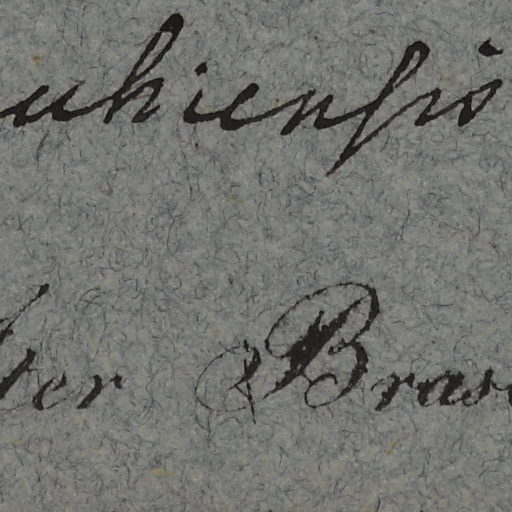 uhienſis
ter Bras